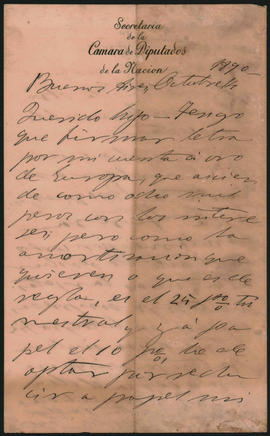 Secretaría
de la
Camara de Diputados
de la Nacion
1890-
Buenos Aires, Octubre
Querido hijo - Tengo
que firmar letra
por mi cuenta á oro
de Europa, que ascien
de como ocho mil
pesos con los intere
ses, pero como la
amortizacion que
quieren o que es de
regla, es el 25 p% tri
mestral y á pa
pel el 10 p%, he de
optar por redu
cir a papel mi